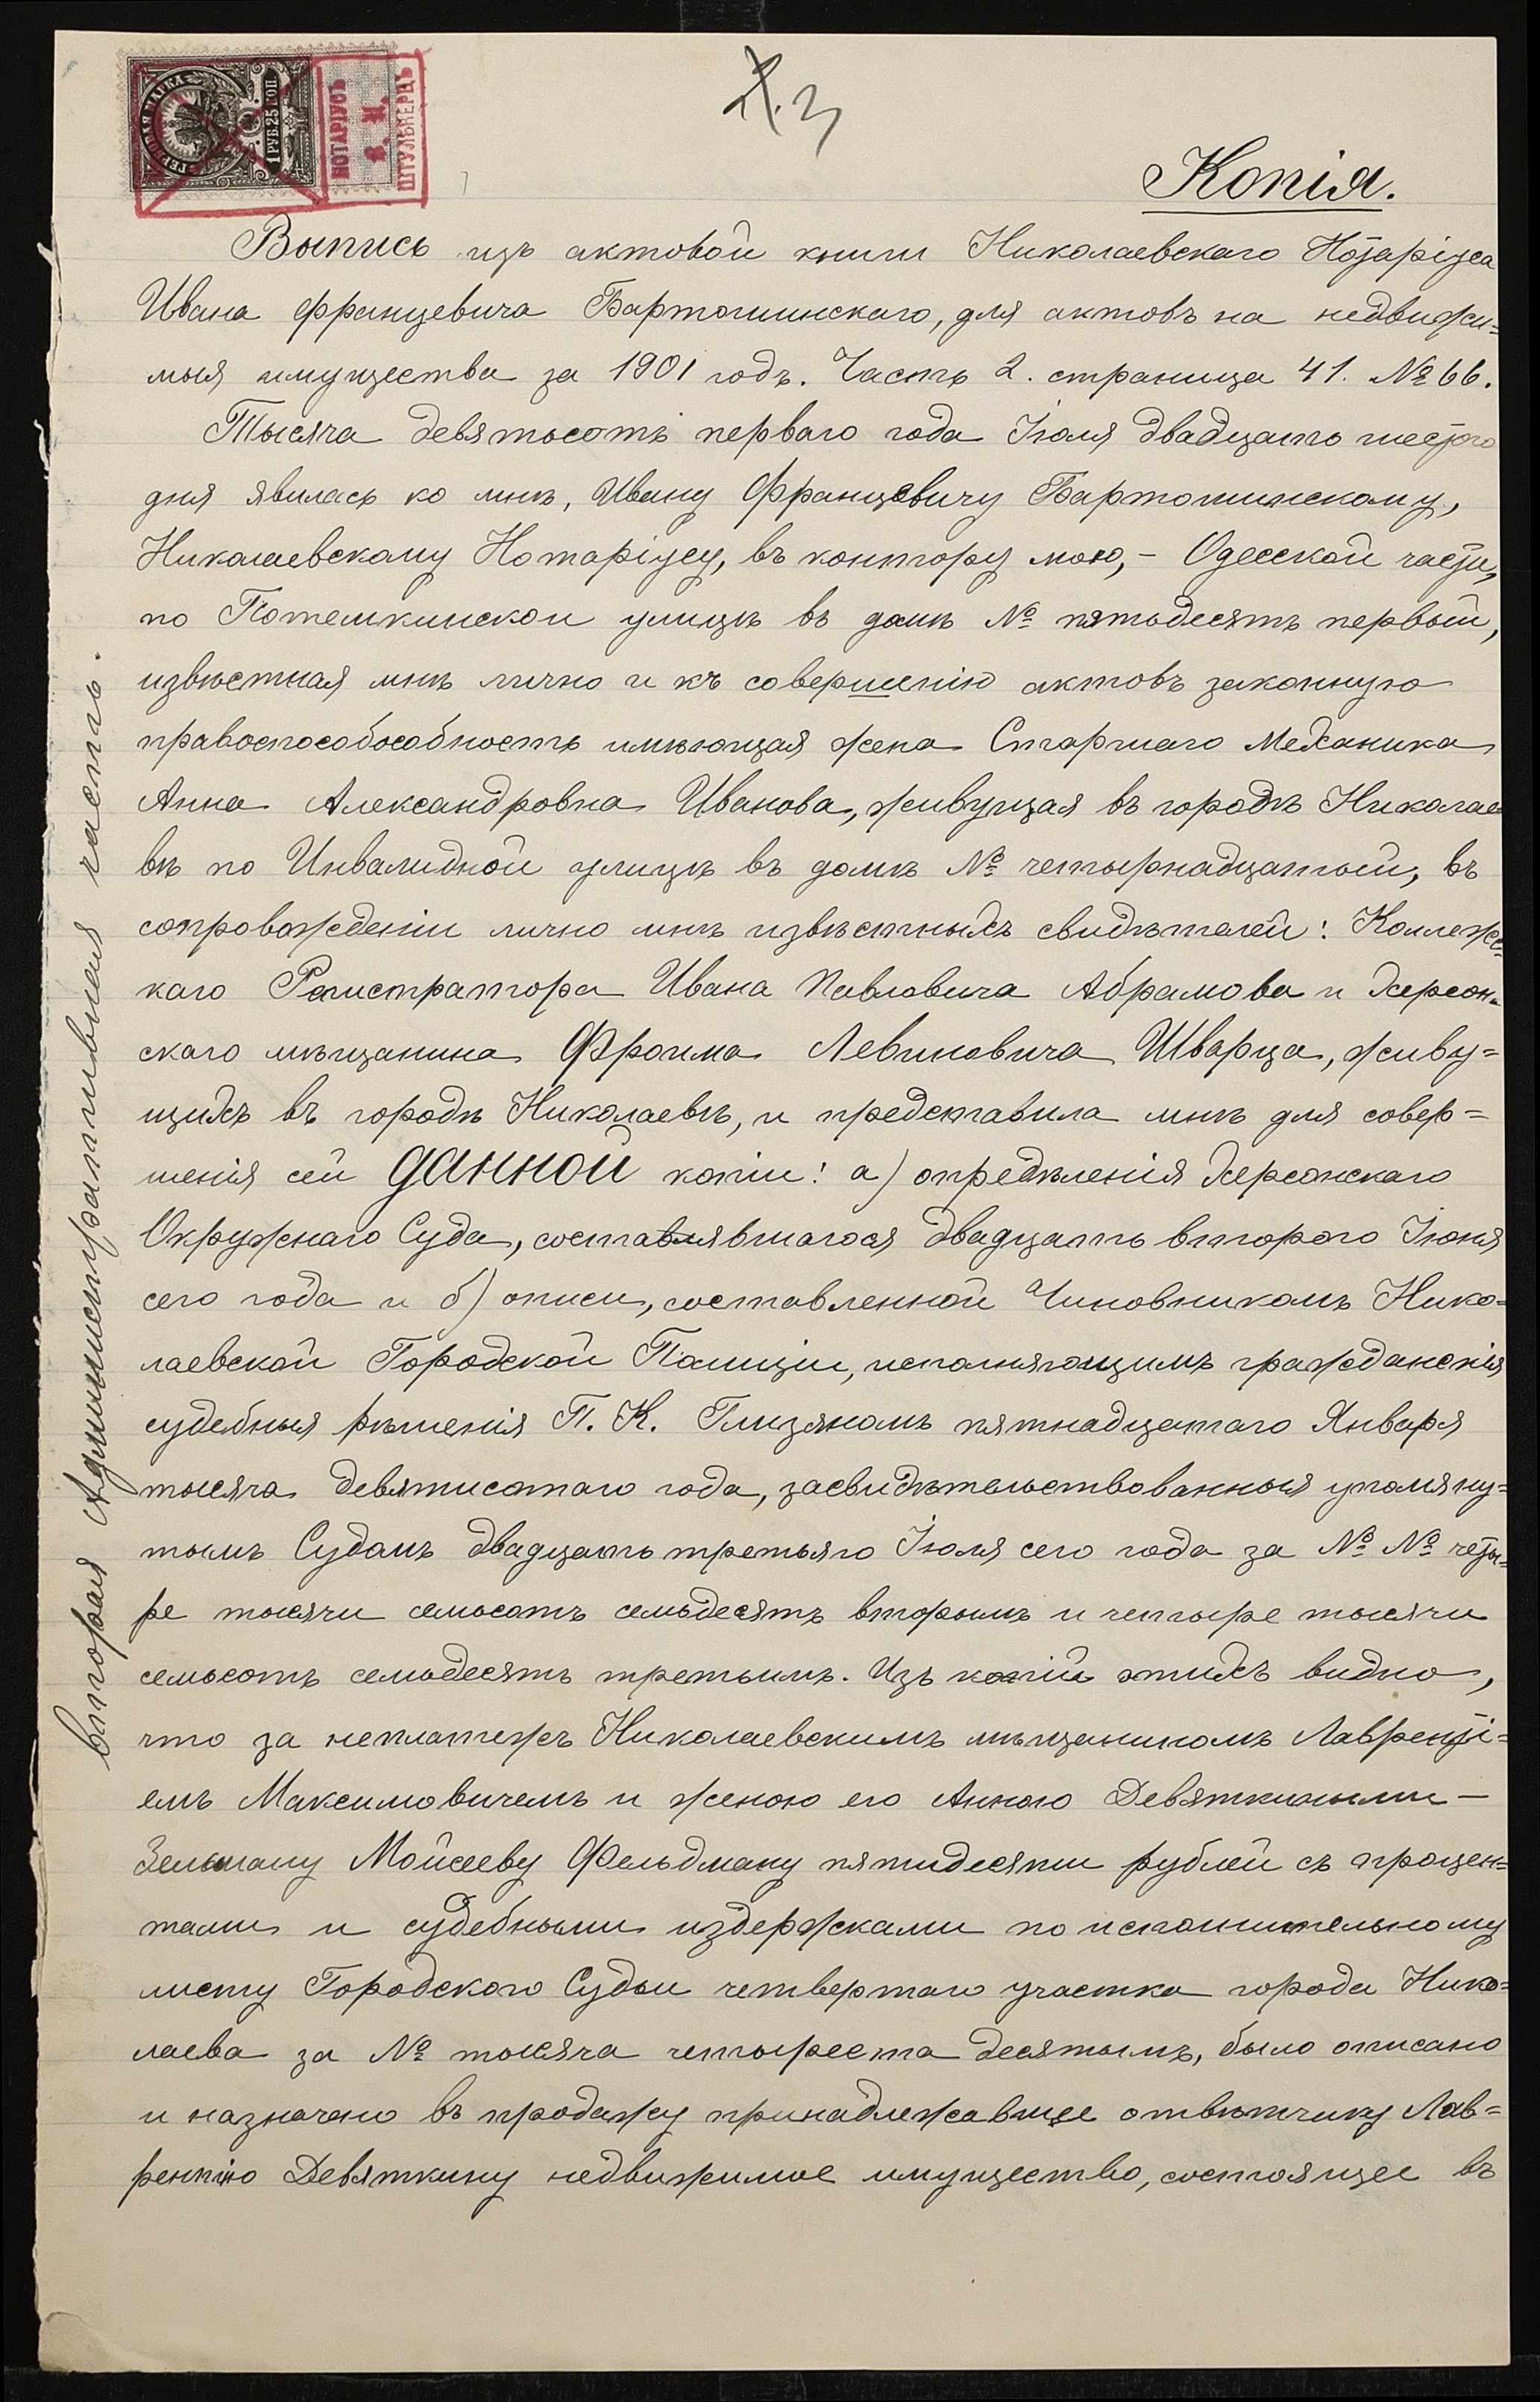 ГЕРБОВАЯ МАРКА
1 РУБ. 25 КОП.
НОТАРІУСЪ
ШТУЛЬКЕРЦЪ
3
Копія.
Выпись изъ актовой книги Николаевскаго Нотаріуса
Ивана Францевича Бартошинскаго, для актовъ на недвижи=
мыя имущества за 1901 годъ. Часть 2. страница 41. № 66.
Тысяча девятьсотъ перваго года Іюля двадцать шестого
дня явилась ко мнѣ, Ивану Францевичу Бартошинскому,
Николаевскому Нотаріусу, въ контору мою, – Одесской части,
по Потемкинской улицѣ въ домѣ № пятьдесятъ первый,
извѣстная мнѣ лично и къ совершенію актовъ законную
правоспособособность имѣющая жена Старшаго Механика
Анна Александровна Иванова, живущая въ городѣ Николае
вѣ по Инвалидной улицѣ въ домѣ № четырнадцатый, въ
сопровожденіи лично мнѣ извѣстныхъ свидѣтелей: Коллежс=
каго Регистратора Ивана Павловича Абрамова и Херсон=
скаго мѣщанина Фроима Левиковича Шварца, живу=
щихъ въ городѣ Николаевѣ, и представила мнѣ для совер=
шенія сей данной копіи: а) опредѣленія Херсонскаго
Окружнаго Суда, составлявшагося двадцать второго Іюня
сего года и б) описи, составленной Чиновникомъ Нико=
лаевской Городской Полиціи, исполняющимъ гражданскія
судебныя рѣшенія П. К. Глизяномъ пятнадцатаго Января
тысяча девятисотаго года, засвидѣтельствованныя упомяну=
тымъ Судомъ двадцать третьяго Іюля сего года за № № четы=
ре тысячи семьсотъ семьдесятъ вторымъ и четыре тысячи
семьсотъ семьдесятъ третьимъ. Изъ копій этихъ видно,
что за неплатежъ Николаевскимъ мѣщаниномъ Лаврентi=
емъ Максимовичемъ и женою его Анною Девяткиными –
Зельману Мойсееву Фельдману пятидесяти рублей съ процен=
тами и судебными издержками по исполнительному
листу Городского Судьи четвертаго участка города Нико=
лаева за № тысяча четыреста десятымъ, было описано
и назначено въ продажу принадлежавшее отвѣтчику Лав=
рентію Девяткину недвижимое имущество, состоящее въ
вторая Административная часть.